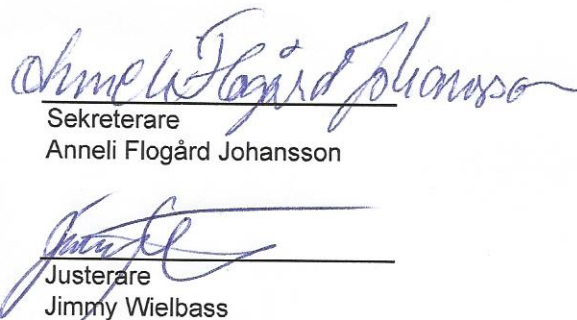 Anneli Flogård Johansson
Sekreterare
Anneli Flogård Johansson
Justerare
Jimmy Wielbass